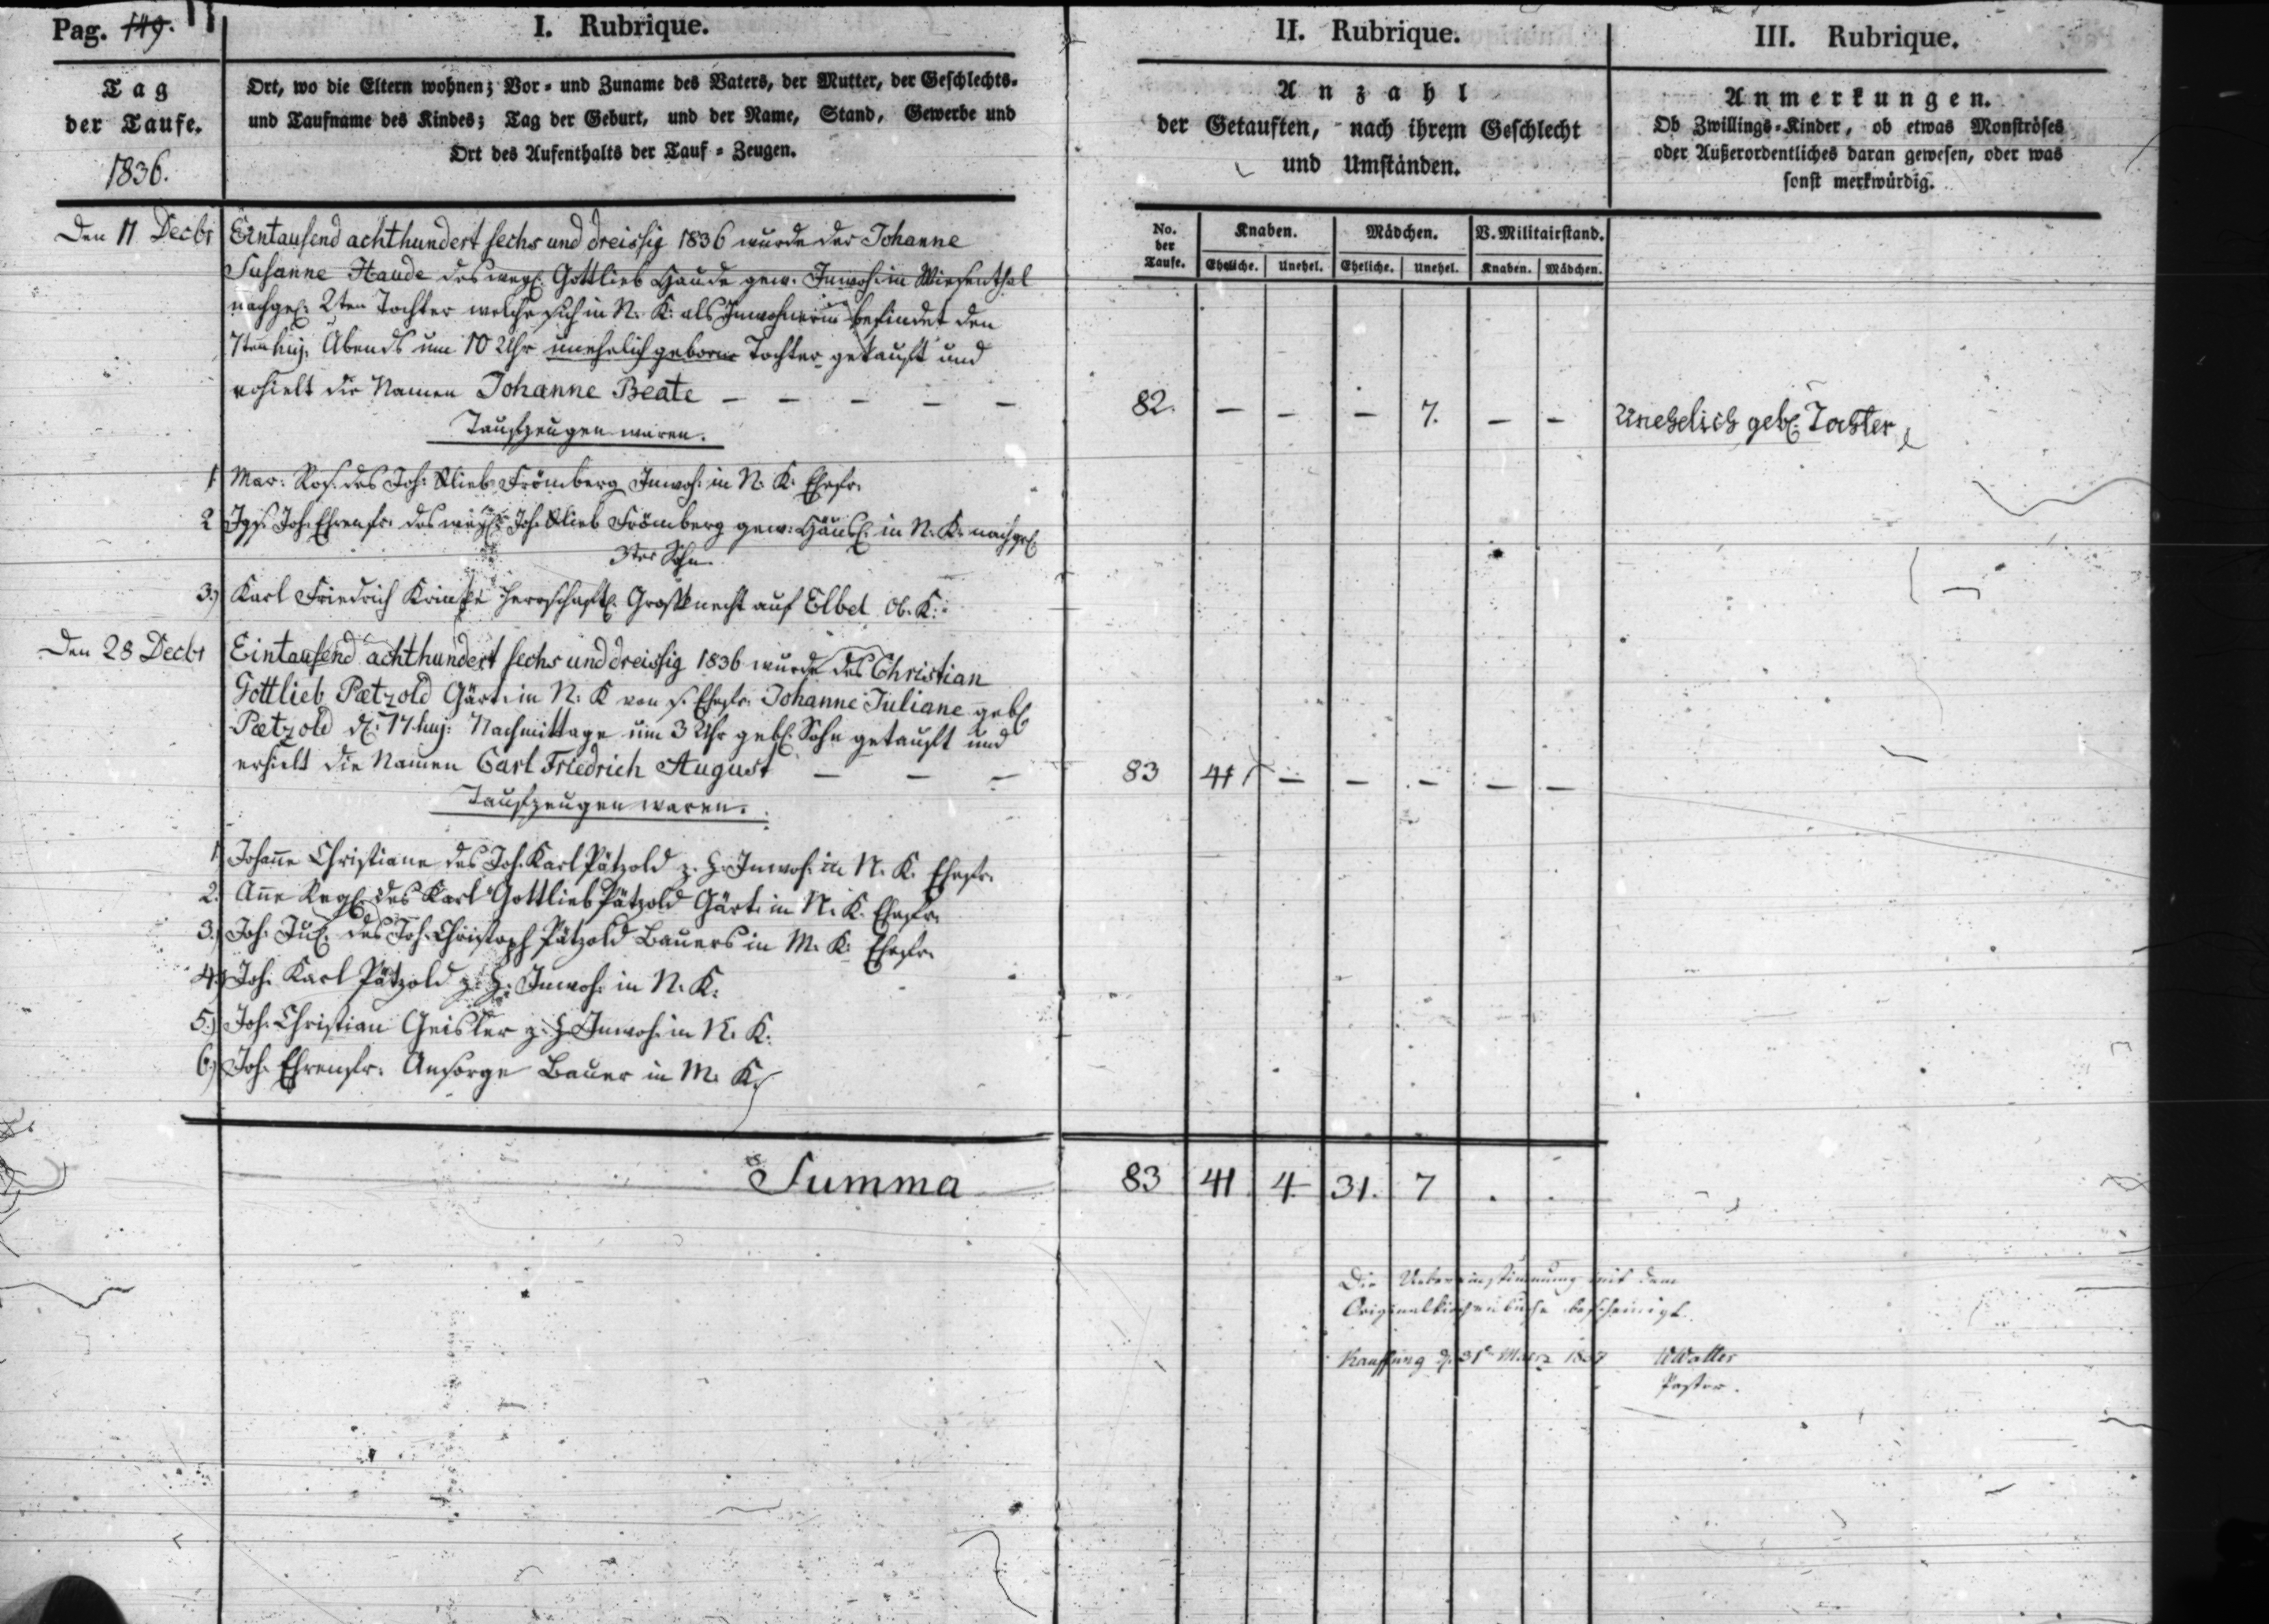 Pag. 149.
I. Rubrique.
II. Rubrique.
III. Rubrique.
Tag
der Taufe.
1836.
Ort, wo die Eltern wohnen; Vor- und Zuname des Vaters, der Mutter, der Geschlechts-
und Taufname des Kindes; Tag der Geburt, und der Name, Stand, Gewerbe und
Ort des Aufenthalts der Tauf-Zeugen.
Anzahl
der Getauften, nach ihrem Geschlecht
und Umständen.
Anmerkungen.
Ob Zwillings-Kinder, ob etwas Monströses
oder Außerordentliches daran gewesen, oder was
sonst merkwürdig.
No. der Taufe. Knaben. Mädchen. V. Militairstand.
Eheliche. Unehel. Eheliche. Unehel. Knaben. Mädchen.
Den 11 Decbr Eintausend achthundert sechs und dreissig 1836 wurde der Johanne
Susanne Haude des weyl. Gottlieb Haude gew. Inwoh. in Wiesenthal
nachgel. 2ten Tochter welche sich in N. K. als Inwohnerin befindet den
7ten huj. Abends um 10 Uhr unehelich geborne Tochter getauft und
erhielt die Namen Johanne Beate – – – – –
82. – – – 7. – – Unehelich geb. Tochter
Taufzeugen waren.
1 Mar. Ros. des Joh. Glieb Frömberg Inwoh. in N. K. Ehefr.
2 Jgs. Joh. Ehrenfr. des weyl. Joh. Glieb Frömberg gew. Häusl. in N. K. nachgel.
3ter Sohn
3.) Karl Friedrich herrschaftl. Großknecht auf Elbel Ob. K.
Den 28 Decbr Eintausend achthundert sechs und dreissig 1836 wurde des Christian
Gottlieb Pætzold Gärt. in N. K von s. Ehefr. Johanne Juliane geb.
Pætzold d. 17 huj. Nachmittage um 3 Uhr geb. Sohn getauft und
erhielt die Namen Carl Friedrich August – – –
83 41 – – – – –
Taufzeugen waren.
1 Johane Christiane des Joh. Karl Pätzold z. H. Inwoh. in N. K. Ehefr.
2. Ane Regl. des Karl Gottlieb Pätzold Gärt. in N. K. Ehefr.
3.) Joh. Jul. des Joh. Christoph Pätzold Bauers in M. K. Ehefr.
4.) Joh. Karl Pätzold z. H. Inwoh. in N. K.
5.) Joh. Christian Geisler z. H. Inwoh. in N. K.
6.) Joh. Ehrenfr. Ansorge Bauer in M. K.
Summa 83 41 4 31. 7 . .
Die Uebereinstimmung mit dem
Originalkirchenbuche bescheinigt.
Kauffung d. 31 März 1837
Pastor.